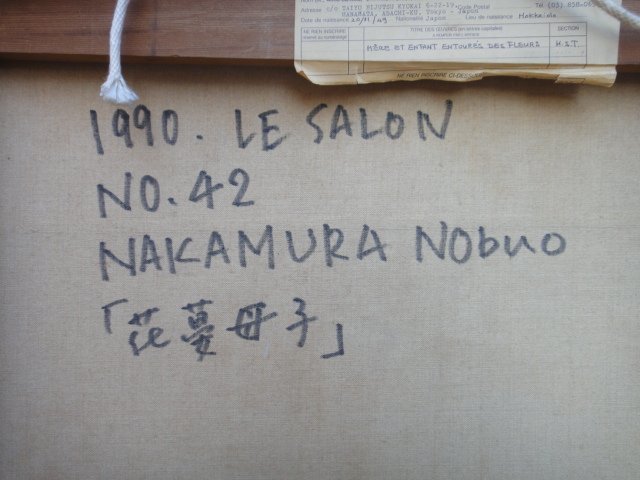 Adresse c/o TAIYO BIJUTSU KYOKAI 6-22-19, Code Postal Tél (03) 858-0
HANAHATA, ADACHI-KU, Tokyo - Japon
Date de naissance 20/11/49 Nationalité Japon Lieu de naissance Hokkaido
NE RIEN INSCRIRE TITRE DES ŒUVRES (en lettres capitales) SECTION
MÈRE ET ENFANT ENTOURÉS DES FLEURS H.S.T.
NE RIEN INSCRIRE CI-DESSOUS
1990. LE SALON
NO. 42
NAKAMURA NObuo
「花蔓母子」